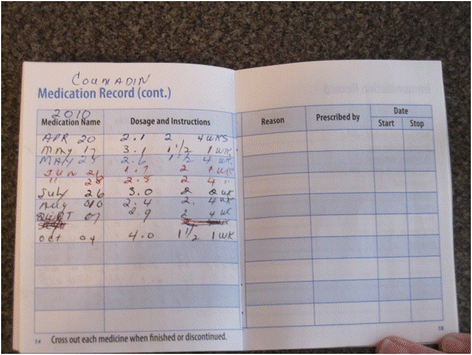 COUMADIN
Medication Record (cont.)
2010
Medication Name Dosage and Instructions Reason Prescribed by Date
Start Stop
APR 20 2.1 2 4 WKS
MAY 17 3.1 1 1/2 1 WK
MAY 25 2.6 1 1/2 4 WK
JUN 1.7 2 1 WK
28 2.5 2 4
July 26 3.0 2 WK
Aug 2.4 2. 4 WK
SEPT 07 2 9 2 4 WK
Oct 04 4.0 1 1/2 1 WK
Cross out each medicine when finished or discontinued.